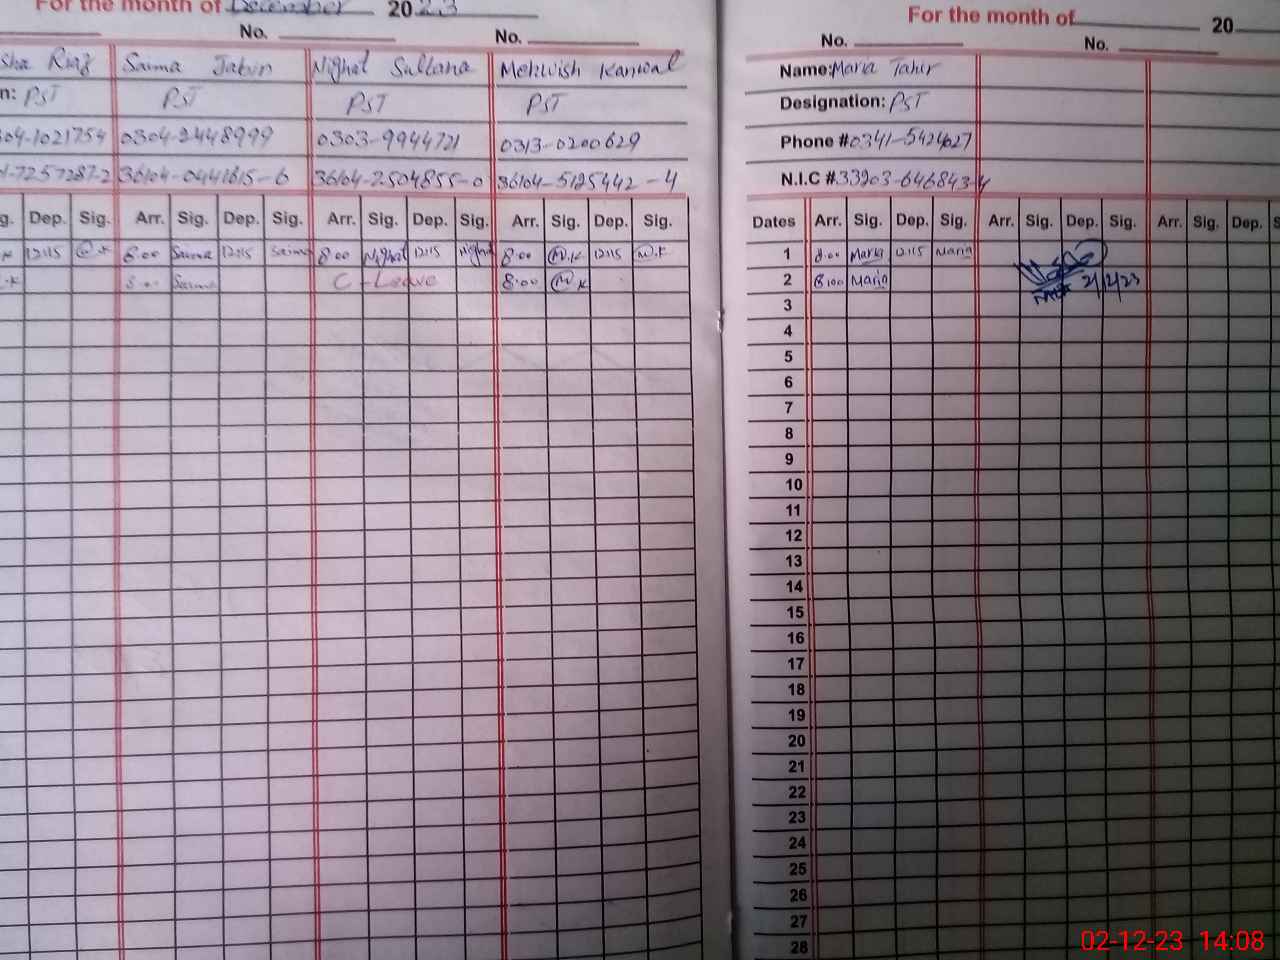 For the month of December 2023
No. No.
sha Riaz Saima Jabin Nighat Sultana Mehwish Kanwal
n: PST PST PST PST
304-1021754 0304-2448999 0303-9944721 0313-0200629
01-7257287-2 36104-0441615-6 36104-2504855-0 36104-5125442-4
g. Dep. Sig. Arr. Sig. Dep. Sig. Arr. Sig. Dep. Sig. Arr. Sig. Dep. Sig.
.K 12:15 8:00 Saima 12:15 Saima 8:00 Nighat 12:15 Nighat 8:00 M.K 12:15 M.K
.K 8:00 Saima C-Leave 8:00 M.K
For the month of 20
No. No.
Name: Maria Tahir
Designation: PST
Phone # 0341-5424627
N.I.C # 33203-646843-4
Dates Arr. Sig. Dep. Sig. Arr. Sig. Dep. Sig. Arr. Sig. Dep. S
1 8:00 Maria 12:15 Maria
2 8:00 Maria 2/12/23
3
4
5
6
7
8
9
10
11
12
13
14
15
16
17
18
19
20
21
22
23
24
25
26
27
28
02-12-23 14:08